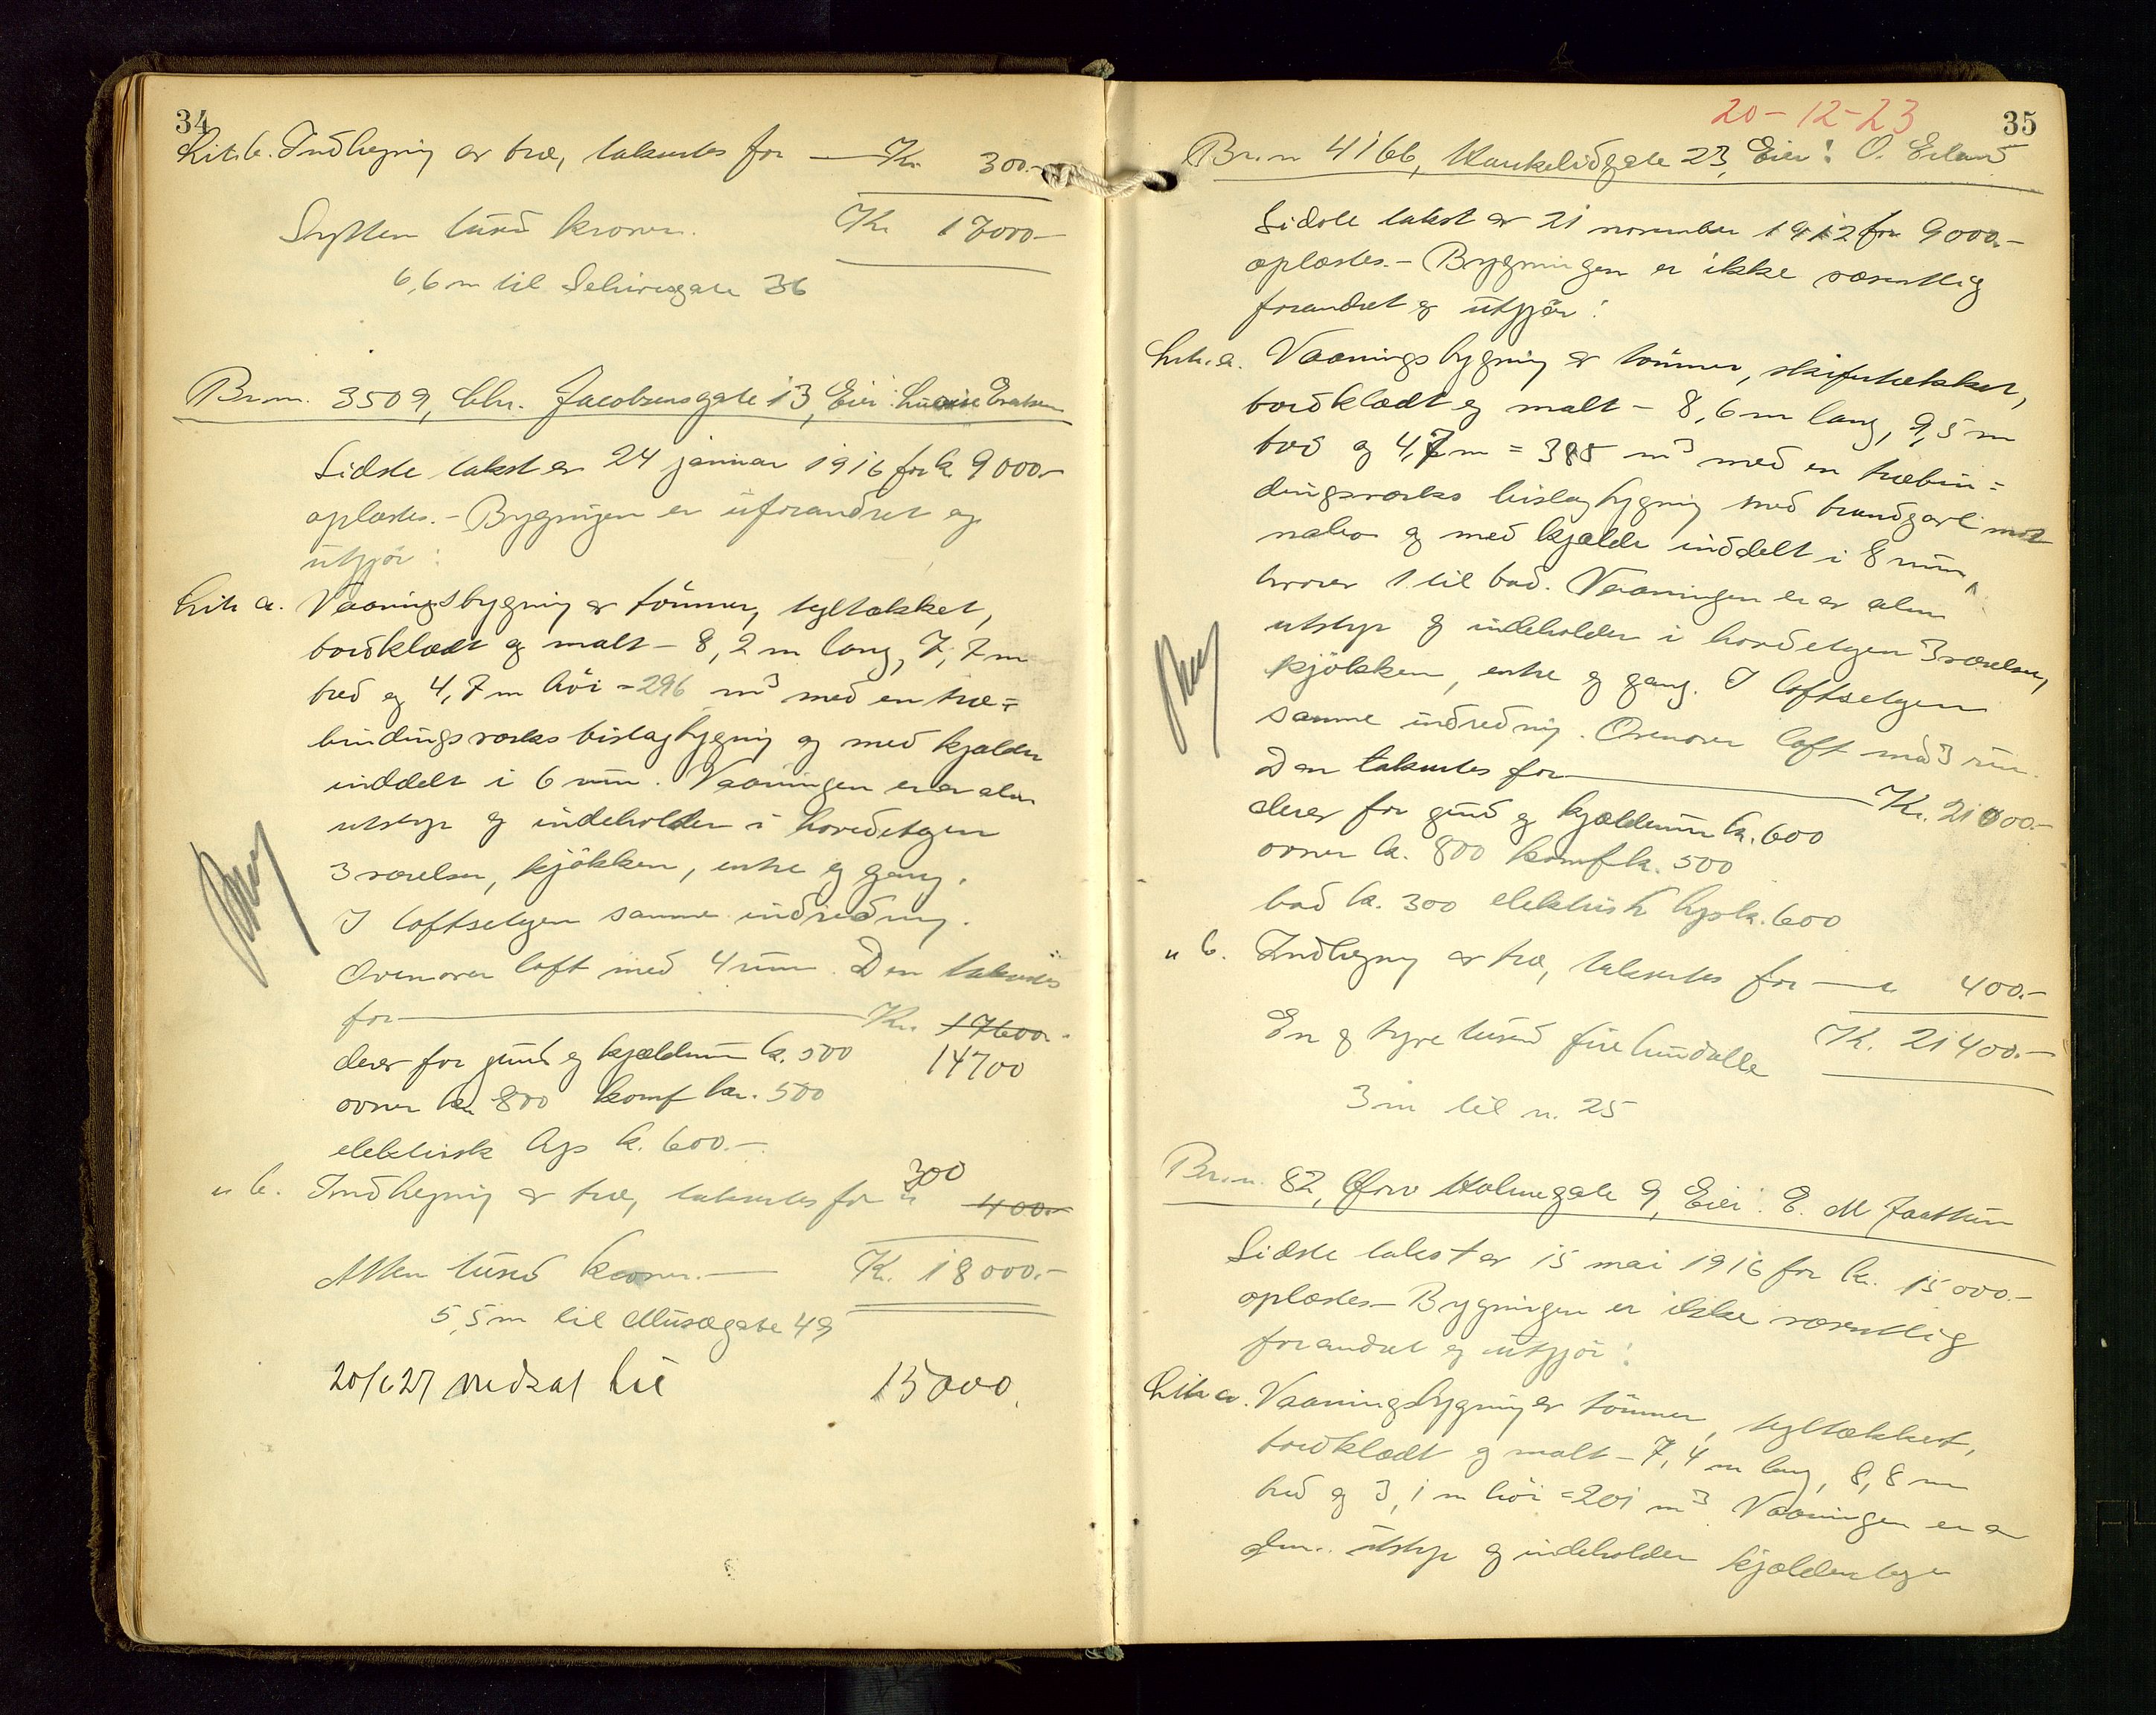 34
Lit. b. Indhegning av træ, takseres for — Kr. 300.-
Sytten tused kroner. Kr 17000.-
6,6 m til Schivesgate 36
Br.nr. 3509, Chr. Jacobsensgate 13, Eier:
Sidste takst av 24 januar 1916 for k. 9000.-
oplæstes. - Bygningen er uforandret og
utgjør:
Litr a. Vaaningsbygning av tømmer, tegltækket,
bordklædt og malt - 8,2 m lang, 7,7 m
bred og 4,7 m høi = 296 m³ med en træ=
bindingsværks bislagbygning og med kjælder
inddelt i 6 rum. Vaaningen er av alm
utstyr og indeholder i hovedetagen
3 værelser, kjøkken, entre og gang.
I loftsetagen samme indredning.
Ovenover loft med 4 rum. Den takseres
for — Kr. 17600.-
derav for grund og kjælderrum k. 500 14700
ovner kr 800 komf kr. 500
elektrisk lys k. 600.-
300
" b. Indhegning av træ, takseres for " 400.-
Atten tused kroner.— K. 18000.-
5,5 m til Musægate 49
20/6 27 nedsat til 15000.
20-12-23
35
Br.nr 4166, Haukelidgate 23, Eier: O. Erland
Sidste takst av 21 november 1912 for 9000.-
oplæstes. - Bygningen er ikke væsentlig
forandret og utgjør:
Litr. a. Vaaningsbygning av tømmer, skifertækket,
bordklædt og malt - 8,6 m lang, 9,5 m
bred og 4,7 m = 385 m³ med en træbin=
dingsværks bislagbygning med brandgavl mot
nabo og med kjælder inddelt i 8 rum
hvorav 1 til bad. Vaaningen er av alm
utstyr og indeholder i hovedetagen 3 værelser,
kjøkken, entre og gang. I loftsetagen
samme indredning. Ovenover loft med 3 rum.
Den takseres for — Kr. 21000.-
derav for grund og kjælderrum k. 600
ovner k. 800 komf k. 500
bad k. 300 elektrisk lys k. 600
" b. Indhegning av træ, takseres for — " 400.-
En og tyve tused fire hundrede K. 21400.-
3 m til n. 25
Br.nr. 82, Øvre Holmegate 9, Eier: E. M Jaatun
Sidste takst av 15 mai 1916 for k. 15000.-
oplæstes - Bygningen er ikke væsentlig
forandret og utgjør:
Litr a. Vaaningsbygning av tømmer, tegltækket,
bordklædt og malt - 7,4 m lang, 8,8 m
bred og 3,1 m høi = 201 m³. Vaaningen er av
alm. utstyr og indeholder kjælderetage